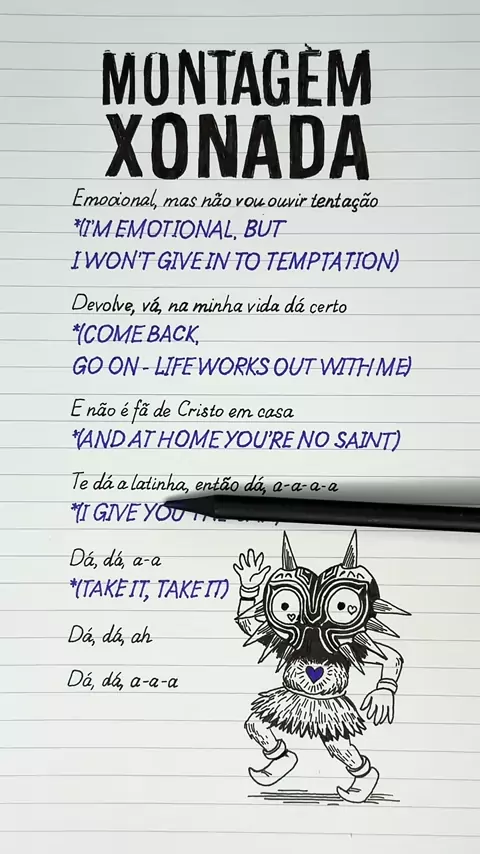 MONTAGÈM
XONADA
Emocional, mas não vou ouvir tentação
*(I'M EMOTIONAL, BUT
I WON'T GIVE IN TO TEMPTATION)
Devolve, vá, na minha vida dá certo
*(COME BACK,
GO ON - LIFE WORKS OUT WITH ME)
E não é fã de Cristo em casa
*(AND AT HOME YOU'RE NO SAINT)
Te dá a latinha, então dá, a-a-a-a
*(I GIVE YOU
Dá, dá, a-a
*(TAKE IT, TAKE IT)
Dá, dá, ah
Dá, dá, a-a-a